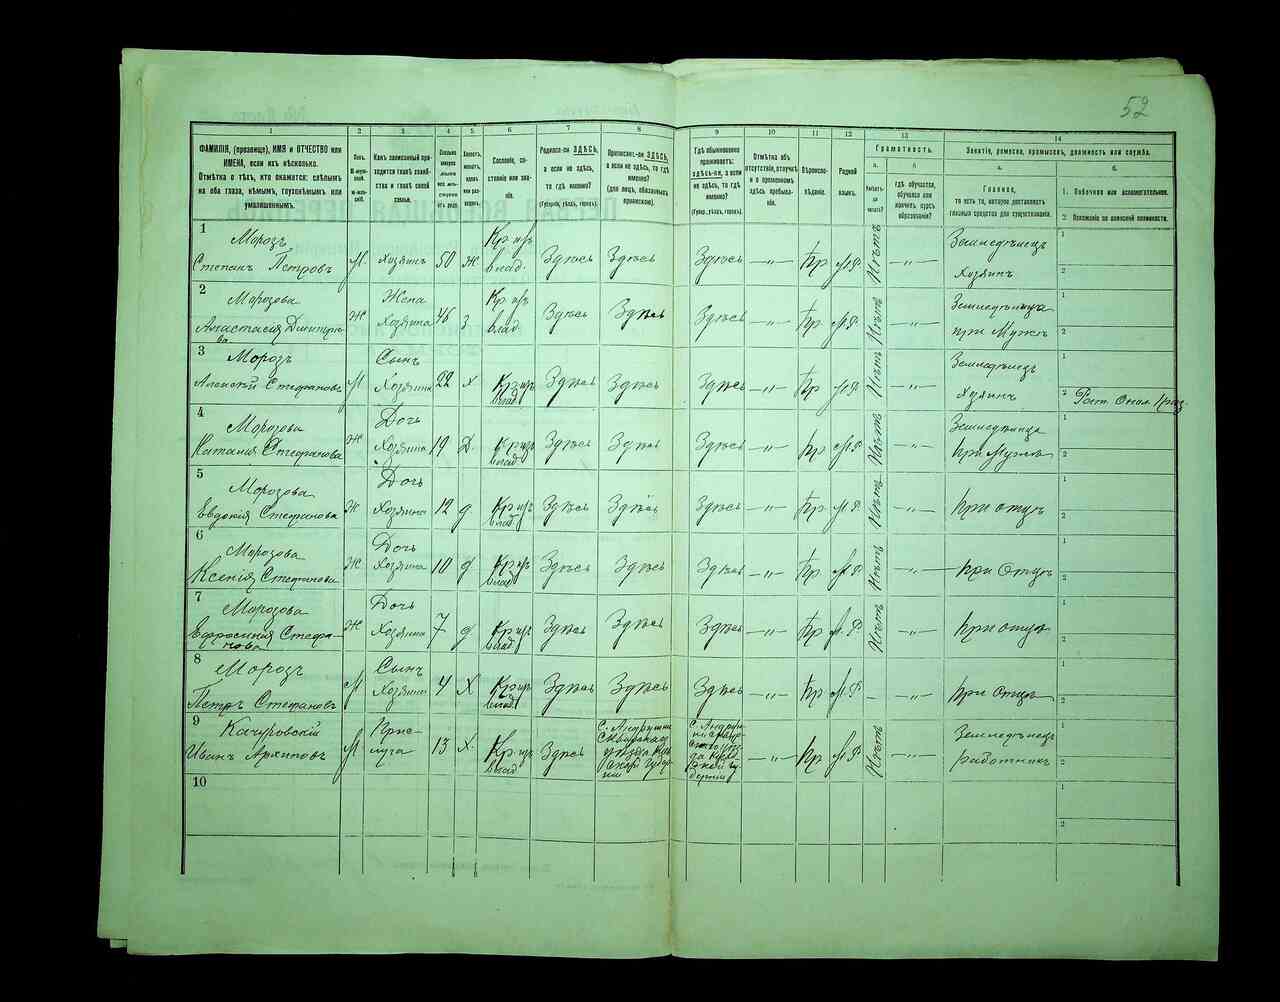 52
1
2
3
4
5
6
7
8
9
10
11
12
13
14
ФАМИЛІЯ, (прозвище), ИМЯ и ОТЧЕСТВО или
ИМЕНА, если ихъ нѣсколько.
Отмѣтка о тѣхъ, кто окажется: слѣпымъ
на оба глаза, нѣмымъ, глухонѣмымъ или
умалишеннымъ.
Полъ.
Какъ записанный при-
ходится главѣ хозяй-
ства и главѣ своей
семьи.
Сословіе, со-
стояніе или зва-
ніе.
Родился-ли ЗДѢСЬ,
а если не здѣсь,
то гдѣ именно?
(Губернія, уѣздъ, городъ).
Приписанъ-ли ЗДѢСЬ,
а если не здѣсь, то гдѣ
именно?
(для лицъ, обязанныхъ
припискою).
Гдѣ обыкновенно
проживаетъ:
здѣсь-ли, а если
не здѣсь, то гдѣ
именно?
(Губер., уѣздъ, городъ).
Отмѣтка объ
отсутствіи, отлучкѣ
и о временномъ
здѣсь пребыва-
ніи.
Вѣроиспо-
вѣданіе.
Родной
языкъ.
Грамотность.
а.
б.
Умѣетъ-
ли
читать?
гдѣ обучается,
обучался или
кончилъ курсъ
образованія?
Занятіе, ремесло, промыселъ, должность или служба.
а.
Главное,
то есть то, которое доставляетъ
главныя средства для существованія.
б.
1. Побочное или вспомогательное.
2. Положеніе по воинской повинности.
1
Морозъ
Степанъ Петровъ
М.
Хозяинъ
50
Ж
Кр изъ
влад.
Здѣсь
Здѣсь
Здѣсь
—"—
Пр
М.Р.
Нѣтъ
—"—
Земледѣлецъ
Хозяинъ
1
2
2
Морозова
Анастасія Дмитріе
ва
Ж
Жена
Хозяина
46
З
Кр изъ
влад.
Здѣсь
Здѣсь
Здѣсь
—"—
Пр
М.Р.
Нѣтъ
—"—
Земледѣлица
при Мужѣ
1
2
3
Морозъ
Алексѣй Стефановъ
М
Сынъ
Хозяина
22
Х
Кр изъ
влад.
Здѣсь
Здѣсь
Здѣсь
—"—
Пр
М.Р.
Нѣтъ
—"—
Земледѣлецъ
Хозяинъ
1
2
4
Морозова
Наталія Стефанова
Ж
Дочь
Хозяина
19
Д.
Кр изъ
влад.
Здѣсь
Здѣсь
Здѣсь
—"—
Пр
М.Р.
Нѣтъ
—"—
Земледѣлица
при Мужѣ
1
2
5
Морозова
Евдокія Стефанова
Ж
Дочь
Хозяина
12
д
Кр изъ
влад.
Здѣсь
Здѣсь
Здѣсь
—"—
Пр
М.Р.
Нѣтъ
—"—
при отцѣ
1
2
6
Морозова
Ксенія Стефанова
Ж
Дочь
Хозяина
10
д
Кр изъ
влад
Здѣсь
Здѣсь
Здѣсь
—"—
Пр
М.Р.
Нѣтъ
—"—
при Отцѣ
1
2
7
Морозова
Ефросинія Стефа-
нова
Ж
Дочь
Хозяина
7
д
Кр изъ
влад.
Здѣсь
Здѣсь
Здѣсь
—"—
Пр
М.Р.
Нѣтъ
—"—
при отцѣ
1
2
8
Морозъ
Петръ Стефановъ
М
Сынъ
Хозяина
4
Х
Кр изъ
влад.
Здѣсь
Здѣсь
Здѣсь
—"—
Пр
М.Р.
–
—"—
при Отцѣ
1
2
9
Качуровскій
Иванъ Архиповъ
М
Прис-
луга
13
Х.
Кр изъ
влад
Здѣсь
С. Андрушки
Сквирскаго
уѣзда Кіев
ской Губер
ніи
С. Андруш
ки Сквир
скаго уѣз
да Кіев
ской Гу
берніи
—"—
Пр
М.Р.
Нѣтъ
—"—
Земледѣлецъ
работникъ
1
2
10
1
2